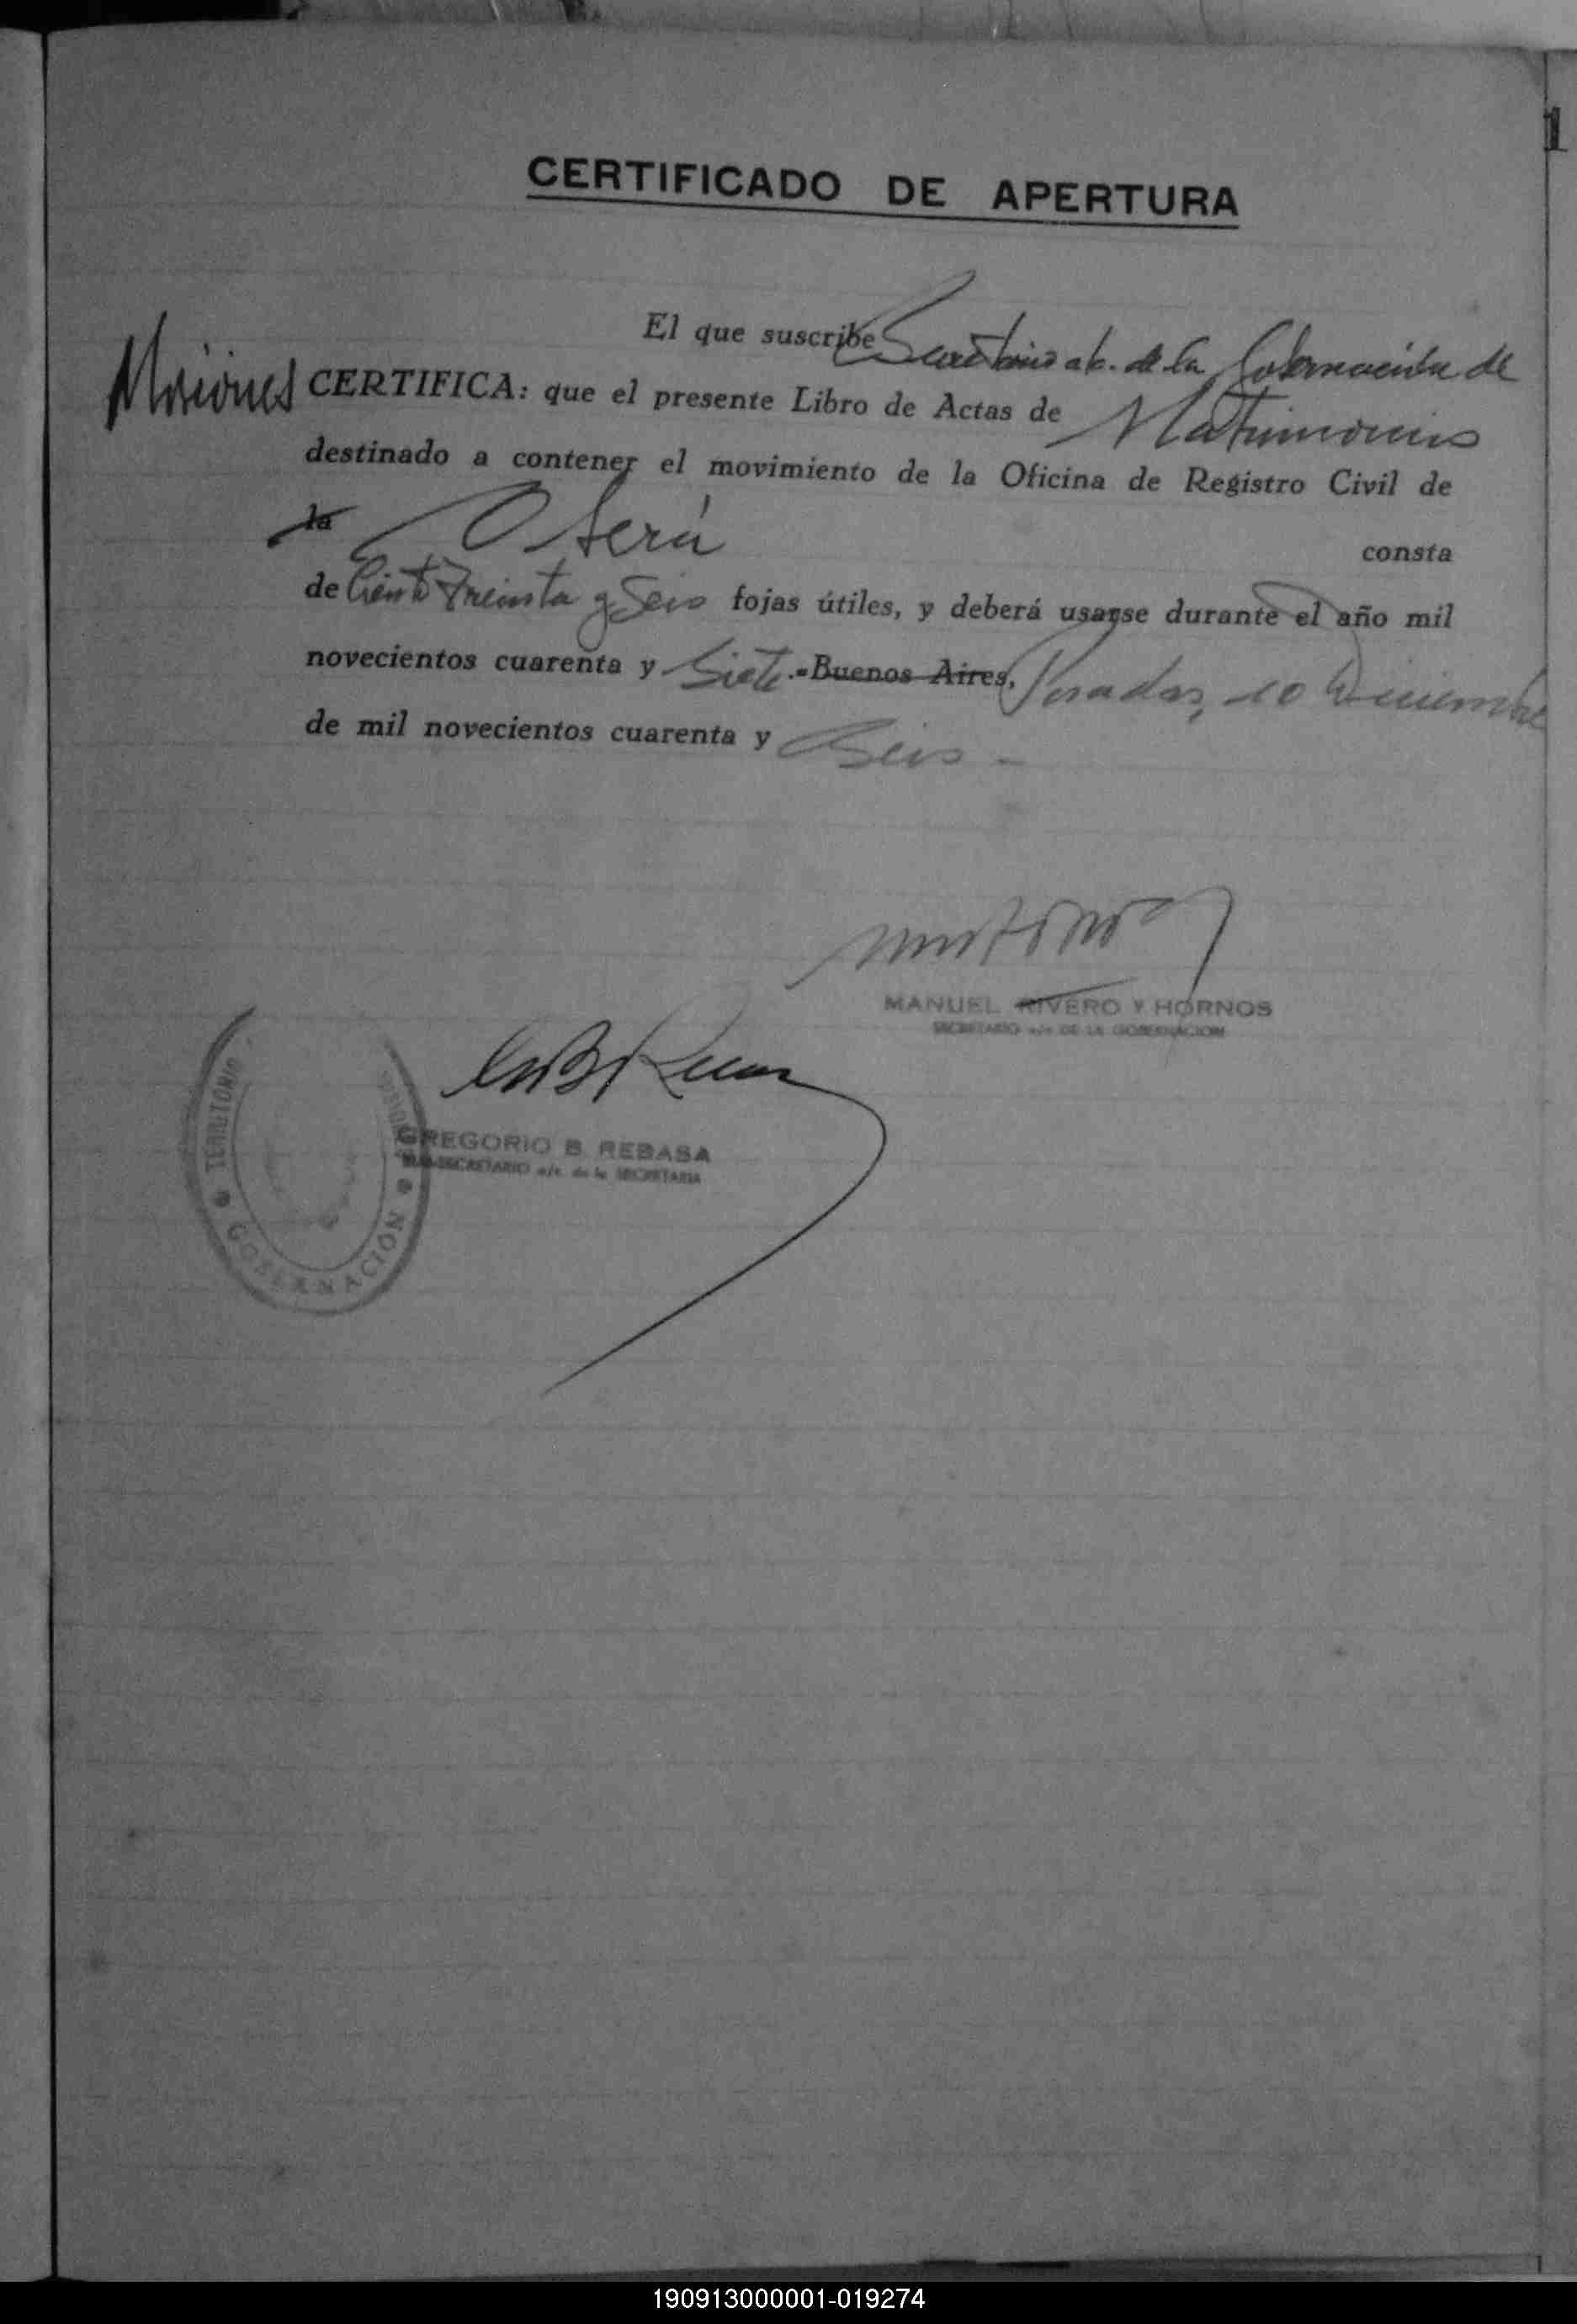 1
CERTIFICADO DE APERTURA
El que suscribe Secretario a/c. de la Gobernación de
Misiones CERTIFICA: que el presente Libro de Actas de Matrimonios
destinado a contener el movimiento de la Oficina de Registro Civil de
la Oberá consta
de Ciento Treinta y Seis fojas útiles, y deberá usarse durante el año mil
novecientos cuarenta y Siete.-Buenos Aires, Posadas, 10 Diciembre
de mil novecientos cuarenta y Seis -
MANUEL RIVERO Y HORNOS
SECRETARIO a/c DE LA GOBERNACION
GREGORIO B. REBASA
SECRETARIO a/c. de la SECRETARIA
TERRITORIO
GOBERNACIÓN
190913000001-019274